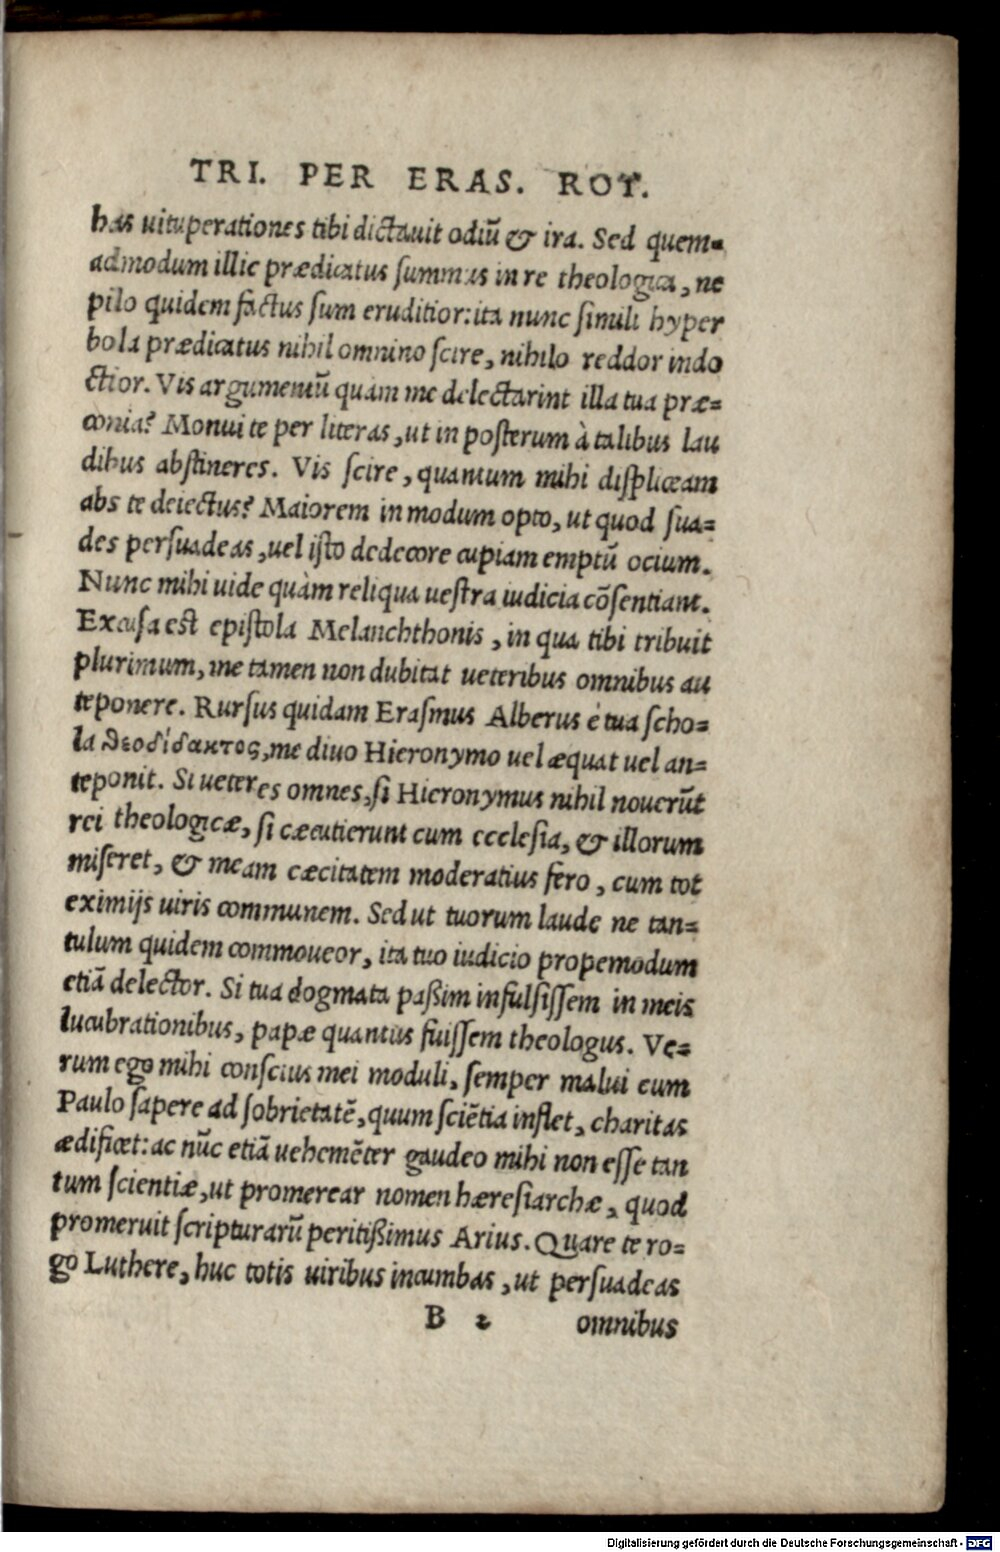 TRI. PER ERAS. ROT.
has uituperationes tibi dictauit odiũ & ira. Sed quem=
admodum illic prædicatus summus in re theologica, ne
pilo quidem factus sum eruditior: ita nunc simili hyper
bola prædicatus nihil omnino scire, nihilo reddor indo
ctior. Vis argumentũ quàm me delectarint illa tua præ=
conia? Monui te per literas, ut in posterum à talibus lau
dibus abstineres. Vis scire, quantum mihi displiceam
abs te deiectus? Maiorem in modum opto, ut quod sua=
des persuadeas, uel isto dedecore cupiam emptũ ocium.
Nunc mihi uide quàm reliqua uestra iudicia cõsentiant.
Excusa est epistola Melanchthonis, in qua tibi tribuit
plurimum, me tamen non dubitat ueteribus omnibus an
teponere. Rursus quidam Erasmus Alberus è tua scho=
la θεοδίδακτος, me diuo Hieronymo uel æquat uel an=
teponit. Si ueteres omnes, si Hieronymus nihil nouerũt
rei theologicæ, si cæcutierunt cum ecclesia, & illorum
miseret, & meam cæcitatem moderatius fero, cum tot
eximijs uiris communem. Sed ut tuorum laude ne tan=
tulum quidem commoueor, ita tuo iudicio propemodum
etiã delector. Si tua dogmata paßim infulsissem in meis
lucubrationibus, papæ quantus fuissem theologus. Ve=
rum ego mihi conscius mei moduli, semper malui cum
Paulo sapere ad sobrietatẽ, quum sciẽtia inflet, charitas
ædificet: ac nũc etiã uehemẽter gaudeo mihi non esse tan
tum scientiæ, ut promerear nomen hæresiarchæ, quod
promeruit scripturarũ peritißimus Arius. Quare te ro=
go Luthere, huc totis uiribus incumbas, ut persuadeas
B 2 omnibus
Digitalisierung gefördert durch die Deutsche Forschungsgemeinschaft - DFG